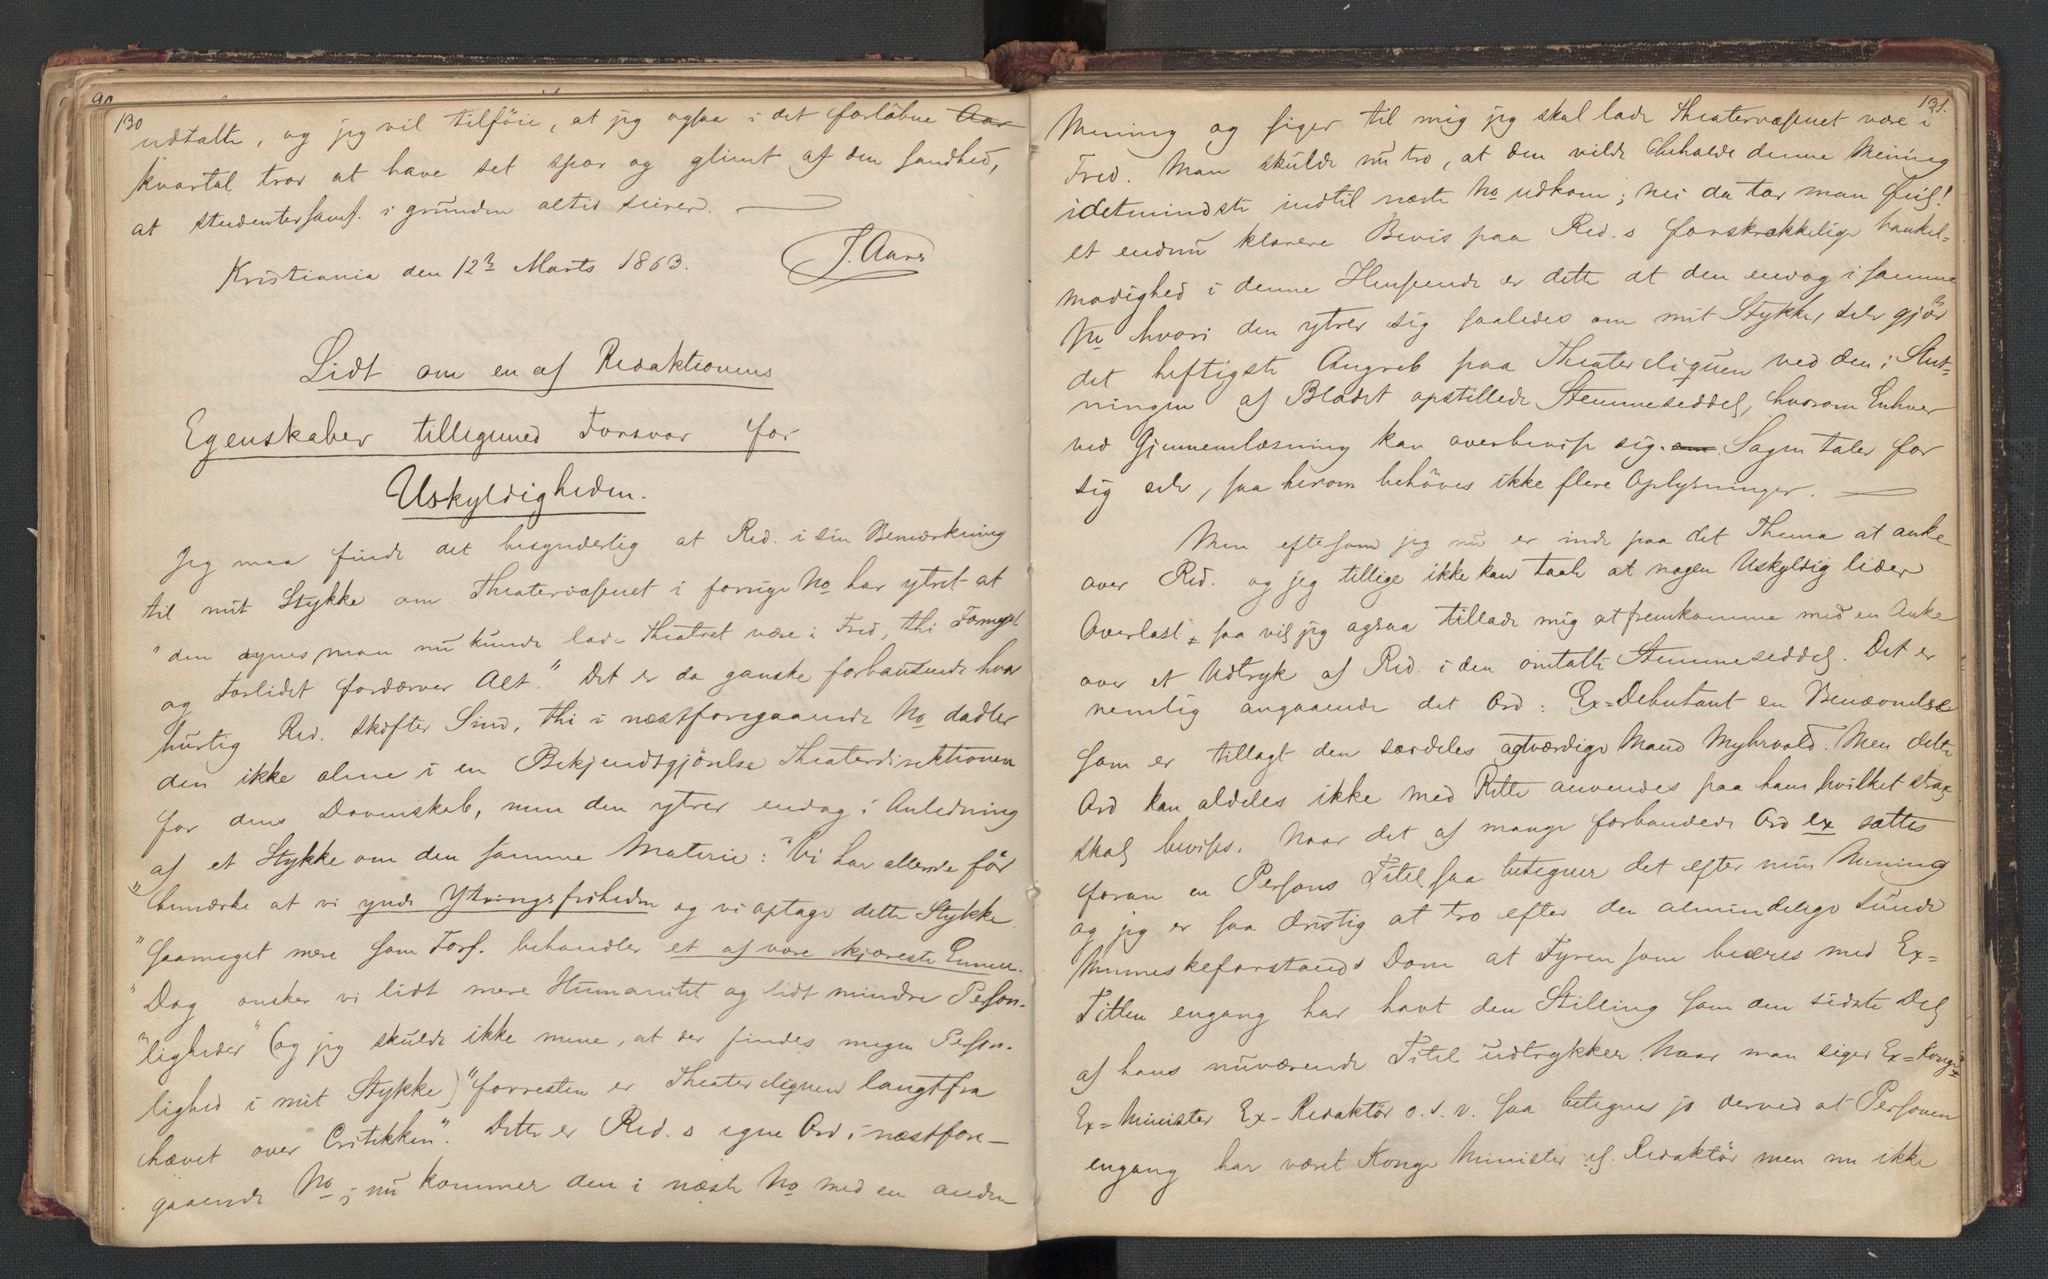 130
udtalte, og jeg vil tilföie, at jeg ogsaa i det forløbne Aar
kvartal tror at have set spor og glimt af den sandhed,
at studentersamf. i grunden altid seirer.
Kristiania den 12te Marts 1863. J. Aars
Lidt om en af Redaktionens
Egenskaber tilligemed Forsvar for
Uskyldigheden.
Jeg maa finde det besynderlig at Red. i sin Bemærkning
til mit Stykke om Theatervæsenet i forrige No har ytret at
"den synes man nu kunde lade Theatret være i Fred, thi Formyel
og Forlidet fordærver Alt." Det er da ganske forbausende hvor
hurtig Red. skifter Sind, thi i næstforegaaende No dadler
den ikke alene i en Bekjendtgjörelse Theaterdirektionen
for dens Dovenskab, men den ytrer endog i Anledning
af et Stykke om den samme Materie: "Vi har allerede för
"bemærke at vi ynde Ytringsfriheden og vi optage dette Stykke
"saameget mere som Forf. behandler et af vore kjæreste Emner.
"Dog ønsker vi lidt mere Humanitet og lidt mindre Person-
"ligheder" (og jeg skulde ikke mene, at der findes megen Person-
lighed i mit Stykke) "forresten er Theatercliquen langtfra
hævet over Critikken". Dette er Red.s egne Ord i næstfore-
gaaende No; nu kommer den i næste No med en anden
131.
Mening og siger til mig jeg skal lade Theatervæsenet være i
Fred. Man skulde nu tro, at den vilde beholde denne Mening
idetmindste indtil næste No udkom; nei da tar man feil!
et endnu klarere Bevis paa Red.s forskrækkelige Vankel-
modighed i denne Henseende er dette at den endog i samme
No hvori den ytrer sig saaledes om mit Stykke, selv gjör
det heftigste Angreb paa Theatercliquen ved den i Slut-
ningen af Bladet opstillede Stemmeseddel, hvorom Enhver
ved Gjennemlæsning kan overbevise sig. om Sagen taler for
sig selv, saa herom behöves ikke flere Oplysninger.
Men eftersom jeg nu er inde paa det Thema at anke
over Red. og jeg tillige ikke kan taale at nogen Uskyldig lider
Overlast, saa vil jeg ogsaa tillade mig at fremkomme med en Anke
over et Udtryk af Red. i den omtalte Stemmeseddel. Det er
nemlig angaaende det Ord: Ex=Debutant en Benævnelse
som er tillagt den særdeles agtværdige Mand Myhrvold. Men dette
Ord kan aldeles ikke med Rette anvendes paa ham hvilket strax
skal bevises. Naar det af mange forbandede Ord ex sættes
foran en Persons Titel saa betegner det efter min Mening
og jeg er saa dristig at tro efter den almindelige sunde
Menneskeforstands Dom at Fyren som beæres med Ex=
Titlen engang har havt den Stilling som den sidste Del
af hans nuværende Titel udtrykker. Naar man siger Ex=Konge
Ex=Minister Ex-Redaktör o.s.v. saa betegnes jo derved at Personen
engang har været Konge Minister el. Redaktör men nu ikke